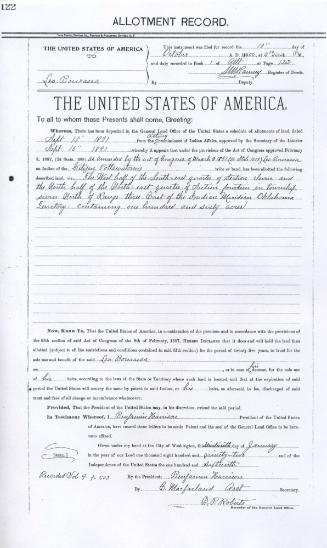 122
ALLOTMENT RECORD.
THE UNITED STATES OF AMERICA
TO
Leo Bourassa
This instrument was filed for record the 10" day of
October A. D. at o'clock M.,
and duly recorded in Book 1 of Allt at Page 122
Register of Deeds.
By Deputy.
THE UNITED STATES OF AMERICA.
To all to whom these Presents shall come, Greeting:
Whereas, There has been deposited in the General Land Office of the United States a schedule of allotments of land, dated
Sept 15" 1891 from the Acting Commissioner of Indian Affairs, approved by the Secretary of the Interior
Sept 16" 1891 whereby it appears that under the provisions of the Act of Congress approved February
8, 1887, (24 Stats., 388) as amended by the act of Congress of March 3 1891 Leo Bourassa
an Indian of the Citizen Pottawatomie tribe or band, has been allotted the following
described land, viz: The West half of the South-east quarter of Section eleven and
the North half of the North-east quarter of Section fourteen in township
seven North of Range three East of the Indian Meridian Oklahoma
Territory: containing one hundred and sixty acres
Now, Know Ye, That the United States of America, in consideration of the premises and in accordance with the provisions of the
fifth section of said Act of Congress of the 8th of February, 1887, Hereby Declares that it does and will hold the land thus
allotted (subject to all the restrictions and conditions contained in said fifth section) for the period of twenty-five years, in trust for the
sole use and benefit of the said Leo Bourassa
or, in case of his decease, for the sole use
of his heirs, according to the laws of the State or Territory where such land is located, and that at the expiration of said
period the United States will convey the same by patent to said Indian, or his heirs, as aforesaid, in fee, discharged of said
trust and free of all charge or incumbrance whatsoever:
Provided, That the President of the United States may, in his discretion, extend the said period.
In Testimony Whereof, I, Benjamin Harrison President of the United States of America,
have caused these letters to be made Patent and the seal of the General Land Office to be here-
unto affixed.
Given under my hand at the City of Washington, this day of January
in the year of our Lord one thousand eight hundred and ninety-two and of the
Independence of the United States the one hundred and sixteenth
By the President: Benjamin Harrison
Recorded Vol 9 p
By Macfarland Asst Secretary.
D. P. Roberts
Recorder of the General Land Office.